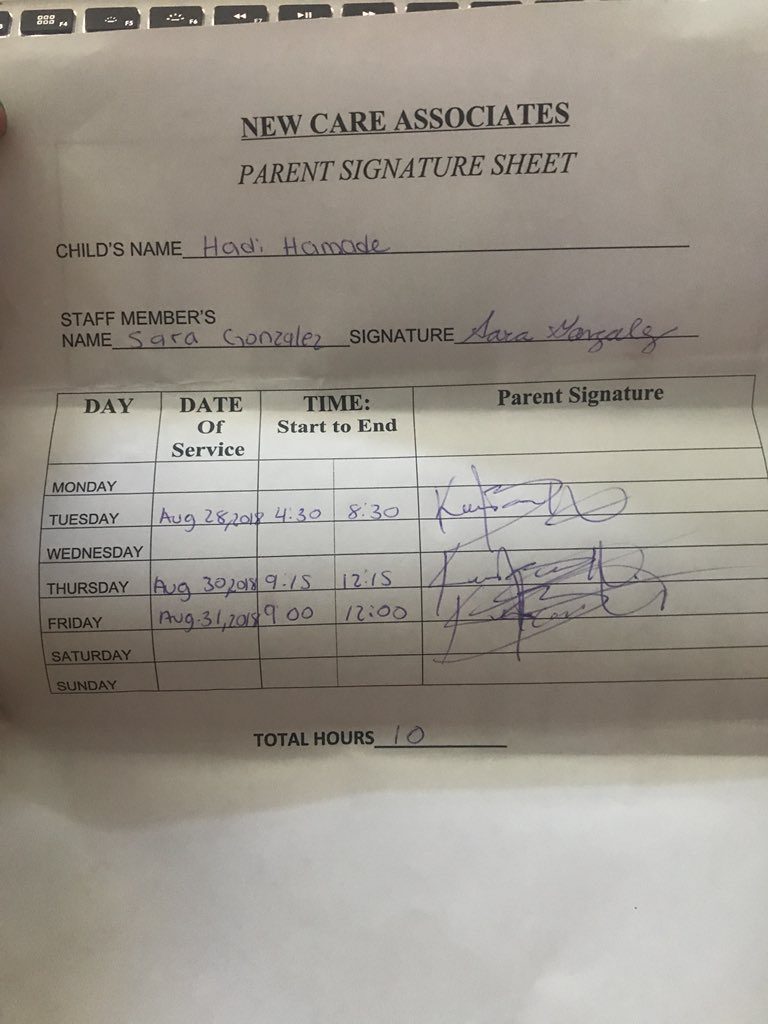 F4 F5 F6 F7
NEW CARE ASSOCIATES
PARENT SIGNATURE SHEET
CHILD'S NAME Hadi Hamade
STAFF MEMBER'S
NAME Sara Gonzalez SIGNATURE Sara Gonzalez
DAY DATE Of Service TIME: Start to End Parent Signature
MONDAY
TUESDAY Aug 28,2018 4:30 8:30
WEDNESDAY
THURSDAY Aug 30,2018 9:15 12:15
FRIDAY Aug.31,2018 9 00 12:00
SATURDAY
SUNDAY
TOTAL HOURS 10